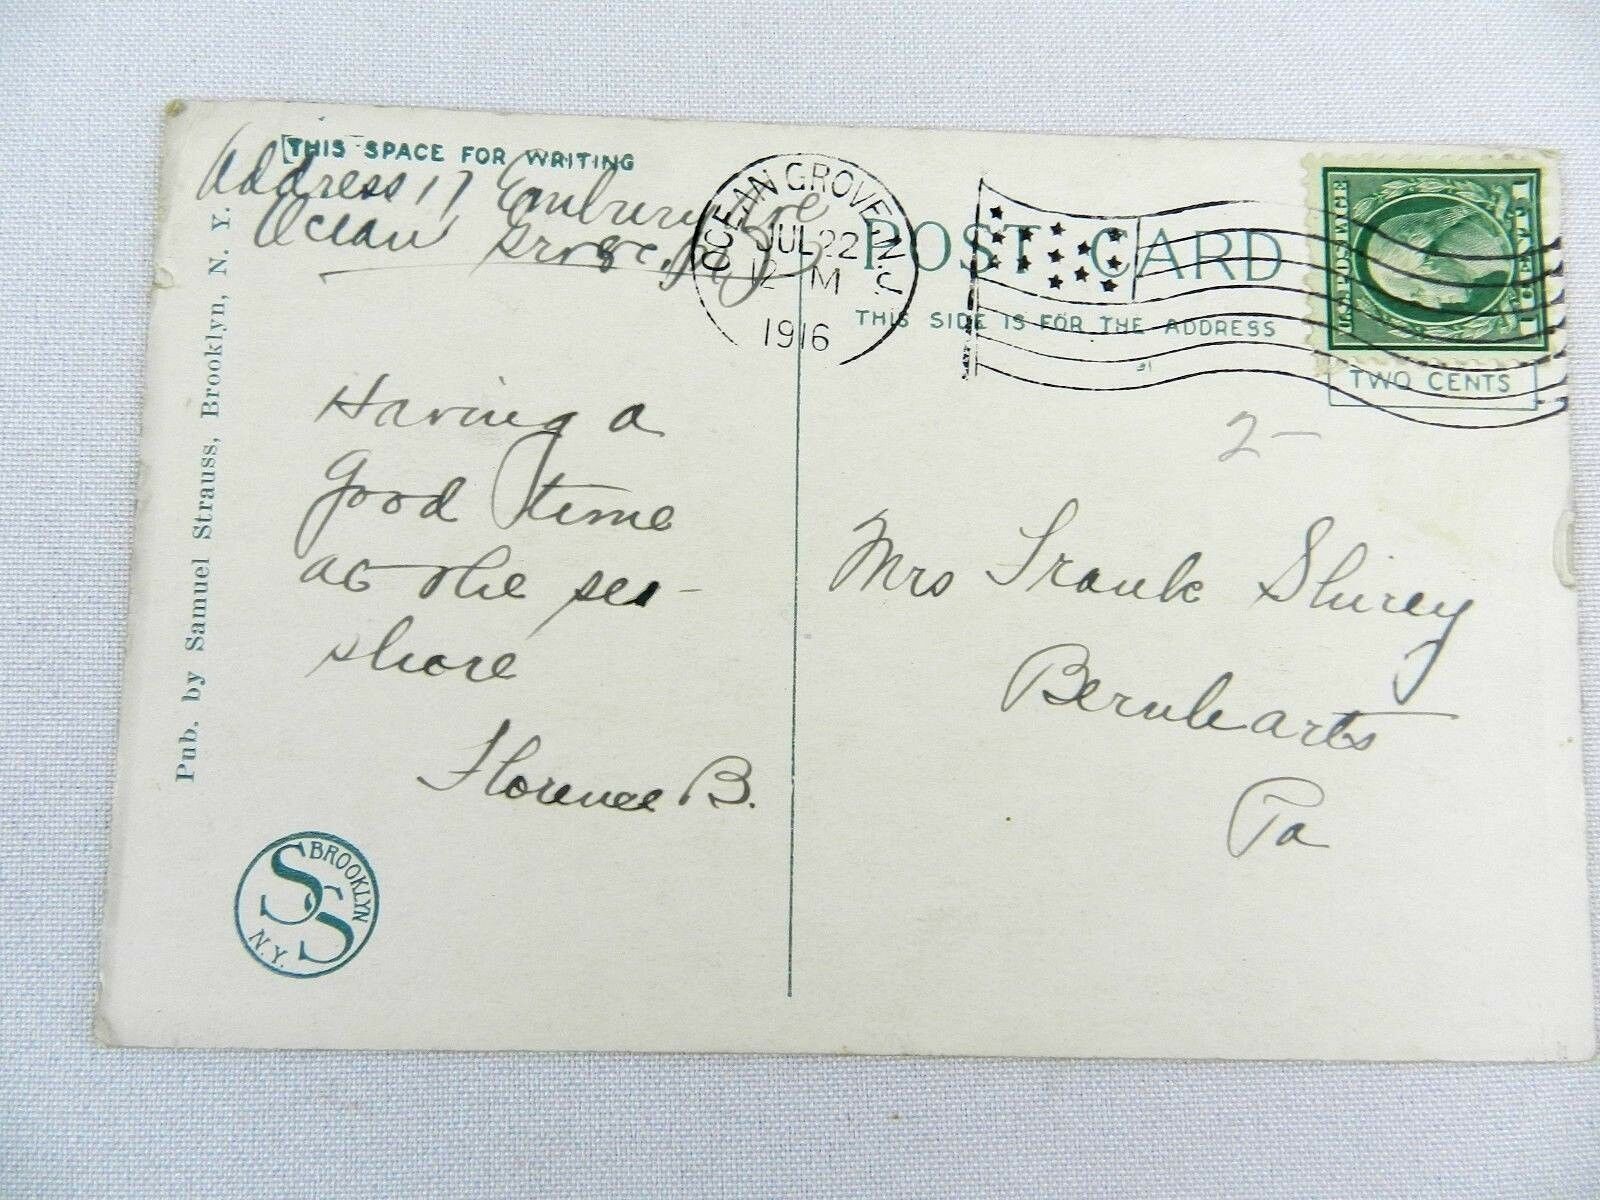 THIS SPACE FOR WRITING
Address 17 Embury Ave
Ocean Grove, N.J.
OCEAN GROVE, N.J.
JUL 22
12 M
1916
POST CARD
THIS SIDE IS FOR THE ADDRESS
U.S. POSTAGE
1 CENT 1
TWO CENTS
2-
Having a
good time
at the sea-
shore
Florence B.
Mrs Frank Shirey
Bernharts
Pa
Pub. by Samuel Strauss, Brooklyn, N. Y.
SS
BROOKLYN
N.Y.